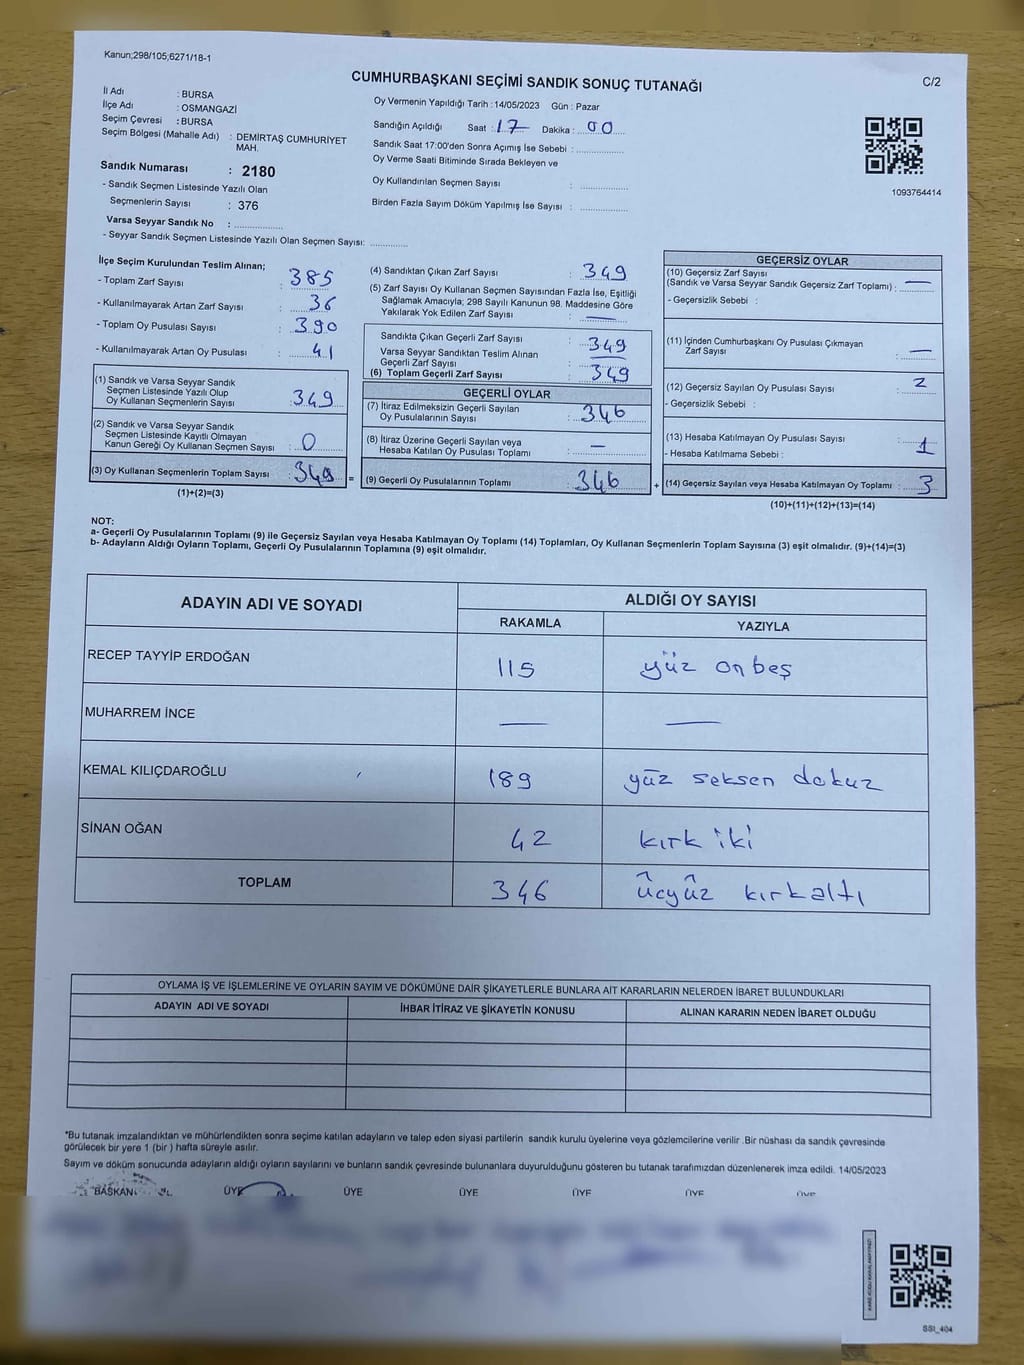 Kanun;298/105;6271/18-1
CUMHURBAŞKANI SEÇİMİ SANDIK SONUÇ TUTANAĞI
C/2
İl Adı : BURSA
İlçe Adı : OSMANGAZİ
Seçim Çevresi : BURSA
Seçim Bölgesi (Mahalle Adı) : DEMİRTAŞ CUMHURİYET
MAH.
Sandık Numarası : 2180
- Sandık Seçmen Listesinde Yazılı Olan
Seçmenlerin Sayısı : 376
Varsa Seyyar Sandık No :
- Seyyar Sandık Seçmen Listesinde Yazılı Olan Seçmen Sayısı:
Oy Vermenin Yapıldığı Tarih : 14/05/2023 Gün : Pazar
Sandığın Açıldığı Saat : 17 Dakika : 00
Sandık Saat 17:00'den Sonra Açımış İse Sebebi :
Oy Verme Saati Bitiminde Sırada Bekleyen ve
Oy Kullandırılan Seçmen Sayısı :
Birden Fazla Sayım Döküm Yapılmış İse Sayısı :
1093764414
İlçe Seçim Kurulundan Teslim Alınan;
- Toplam Zarf Sayısı : 385
- Kullanılmayarak Artan Zarf Sayısı : 36
- Toplam Oy Pusulası Sayısı : 390
- Kullanılmayarak Artan Oy Pusulası : 41
(1) Sandık ve Varsa Seyyar Sandık
Seçmen Listesinde Yazılı Olup
Oy Kullanan Seçmenlerin Sayısı : 349
(2) Sandık ve Varsa Seyyar Sandık
Seçmen Listesinde Kayıtlı Olmayan
Kanun Gereği Oy Kullanan Seçmen Sayısı : 0
(3) Oy Kullanan Seçmenlerin Toplam Sayısı : 349 =
(1)+(2)=(3)
(4) Sandıktan Çıkan Zarf Sayısı : 349
(5) Zarf Sayısı Oy Kullanan Seçmen Sayısından Fazla İse, Eşitliği
Sağlamak Amacıyla; 298 Sayılı Kanunun 98. Maddesine Göre
Yakılarak Yok Edilen Zarf Sayısı : —
Sandıkta Çıkan Geçerli Zarf Sayısı : 349
Varsa Seyyar Sandıktan Teslim Alınan
Geçerli Zarf Sayısı : —
(6) Toplam Geçerli Zarf Sayısı : 349
GEÇERLİ OYLAR
(7) İtiraz Edilmeksizin Geçerli Sayılan
Oy Pusulalarının Sayısı : 346
(8) İtiraz Üzerine Geçerli Sayılan veya
Hesaba Katılan Oy Pusulası Toplamı : —
(9) Geçerli Oy Pusulalarının Toplamı : 346 +
GEÇERSİZ OYLAR
(10) Geçersiz Zarf Sayısı
(Sandık ve Varsa Seyyar Sandık Geçersiz Zarf Toplamı) : —
- Geçersizlik Sebebi :
(11) İçinden Cumhurbaşkanı Oy Pusulası Çıkmayan
Zarf Sayısı : —
(12) Geçersiz Sayılan Oy Pusulası Sayısı : 2
- Geçersizlik Sebebi :
(13) Hesaba Katılmayan Oy Pusulası Sayısı : 1
- Hesaba Katılmama Sebebi :
(14) Geçersiz Sayılan veya Hesaba Katılmayan Oy Toplamı : 3
(10)+(11)+(12)+(13)=(14)
NOT:
a- Geçerli Oy Pusulalarının Toplamı (9) ile Geçersiz Sayılan veya Hesaba Katılmayan Oy Toplamı (14) Toplamları, Oy Kullanan Seçmenlerin Toplam Sayısına (3) eşit olmalıdır. (9)+(14)=(3)
b- Adayların Aldığı Oyların Toplamı, Geçerli Oy Pusulalarının Toplamına (9) eşit olmalıdır.
ADAYIN ADI VE SOYADI ALDIĞI OY SAYISI
RAKAMLA YAZIYLA
RECEP TAYYİP ERDOĞAN 115 yüz onbeş
MUHARREM İNCE — —
KEMAL KILIÇDAROĞLU 189 yüz seksen dokuz
SİNAN OĞAN 42 kırk iki
TOPLAM 346 ücyüz kırkaltı
OYLAMA İŞ VE İŞLEMLERİNE VE OYLARIN SAYIM VE DÖKÜMÜNE DAİR ŞİKAYETLERLE BUNLARA AİT KARARLARIN NELERDEN İBARET BULUNDUKLARI
ADAYIN ADI VE SOYADI İHBAR İTİRAZ VE ŞİKAYETİN KONUSU ALINAN KARARIN NEDEN İBARET OLDUĞU
*Bu tutanak imzalandıktan ve mühürlendikten sonra seçime katılan adayların ve talep eden siyasi partilerin sandık kurulu üyelerine veya gözlemcilerine verilir .Bir nüshası da sandık çevresinde
görülecek bir yere 1 (bir ) hafta süreyle asılır.
Sayım ve döküm sonucunda adayların aldığı oyların sayılarını ve bunların sandık çevresinde bulunanlara duyurulduğunu gösteren bu tutanak tarafımızdan düzenlenerek imza edildi. 14/05/2023
BAŞKAN ÜYE ÜYE ÜYE ÜYE ÜYE ÜYE
SSI_404